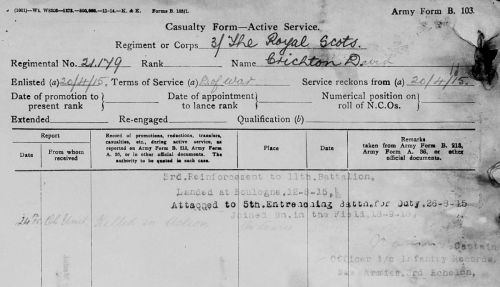 Army Form B. 103.
Casualty Form—Active Service.
Regiment or Corps 3/The Royal Scots.
Regimental No. 21179 Rank Name Crichton David
Enlisted (a) 20/4/15. Terms of Service (a) Service reckons from (a) 20/4/15.
Date of promotion to present rank Date of appointment to lance rank Numerical position on roll of N.C.Os.
Extended Re-engaged Qualification (b)
Report
Date From whom received
Record of promotions, reductions, transfers, casualties, etc., during active service, as reported on Army Form B. 213, Army Form A. 36, or in other official documents. The authority to be quoted in each case.
Place
Date
Remarks
taken from Army Form B. 213, Army Form A. 36, or other official documents.
3rd.Reinforcement to 11th.Battalion,
Landed at Boulogne,
Attached to 5th.Entrenching Battn.for Duty.
Joined Bn.in the Field.
Killed in Action
Captain
Officer i/c Infantry Records,
3rd Echelon,